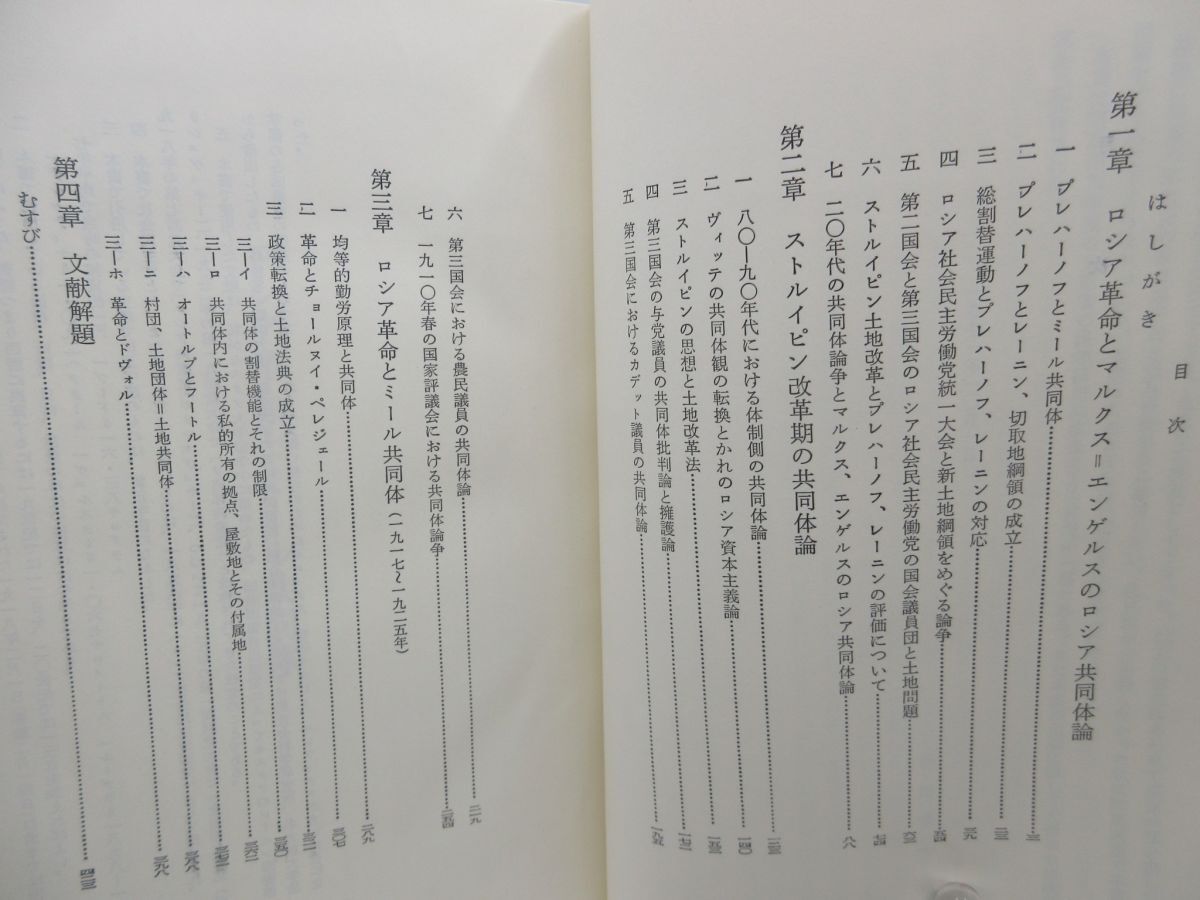 目次
はしがき
第一章 ロシア革命とマルクス＝エンゲルスのロシア共同体論
一 プレハーノフとミール共同体……三
二 プレハーノフとレーニン、切取地綱領の成立……
三 総割替運動とプレハーノフ、レーニンの対応……
四 ロシア社会民主労働党統一大会と新土地綱領をめぐる論争……
五 第二国会と第三国会のロシア社会民主労働党の国会議員団と土地問題……
六 ストルイピン土地改革とプレハーノフ、レーニンの評価について……七四
七 二〇年代の共同体論争とマルクス、エンゲルスのロシア共同体論……八八
第二章 ストルイピン改革期の共同体論
一 八〇―九〇年代における体制側の共同体論……一二三
二 ヴィッテの共同体観の転換とかれのロシア資本主義論……一四〇
三 ストルイピンの思想と土地改革法……一五三
四 第三国会の与党議員の共同体批判論と擁護論……一七二
五 第三国会におけるカデット議員の共同体論……一九五
六 第三国会における農民議員の共同体論……二一九
七 一九一〇年春の国家評議会における共同体論争……二五四
第三章 ロシア革命とミール共同体（一九一七〜一九二五年）
一 均等的勤労原理と共同体……二八九
二 革命とチョールヌイ・ペレジェール……三〇七
三 政策転換と土地法典の成立……三二一
三―イ 共同体の割替機能とそれの制限……三五〇
三―ロ 共同体内における私的所有の拠点、屋敷地とその付属地……三六二
三―ハ オートルプとフートル……三七二
三―ニ 村団、土地団体＝土地共同体……三八八
三―ホ 革命とドヴォル……三九八
第四章 文献解題
むすび……